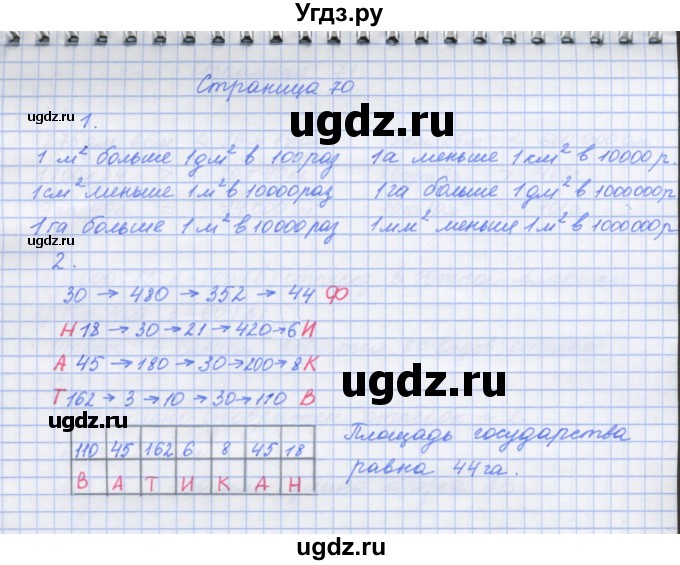 Угдз.ру
Страница 70
ugdz.ru
1.
ugdz.ru
1 м² больше 1 дм² в 100 раз 1а меньше 1 км² в 10000 р.
1 см² меньше 1 м² в 10000 раз 1 га больше 1 дм² в 1000000 р
1 га больше 1 м² в 10000 раз 1 мм² меньше 1 м² в 1000000 р
ugdz.ru
2.
30 → 480 → 352 → 44 Ф
Н 18 → 30 → 21 → 420 → 6 И
А 45 → 180 → 30 → 200 → 8 К
ugdz.ru
Т 162 → 3 → 10 → 30 → 110 В
ugdz.ru
110 45 162 6 8 45 18
В А Т И К А Н
Площадь государства
равна 44 га.
ugdz.ru
ugdz.ru